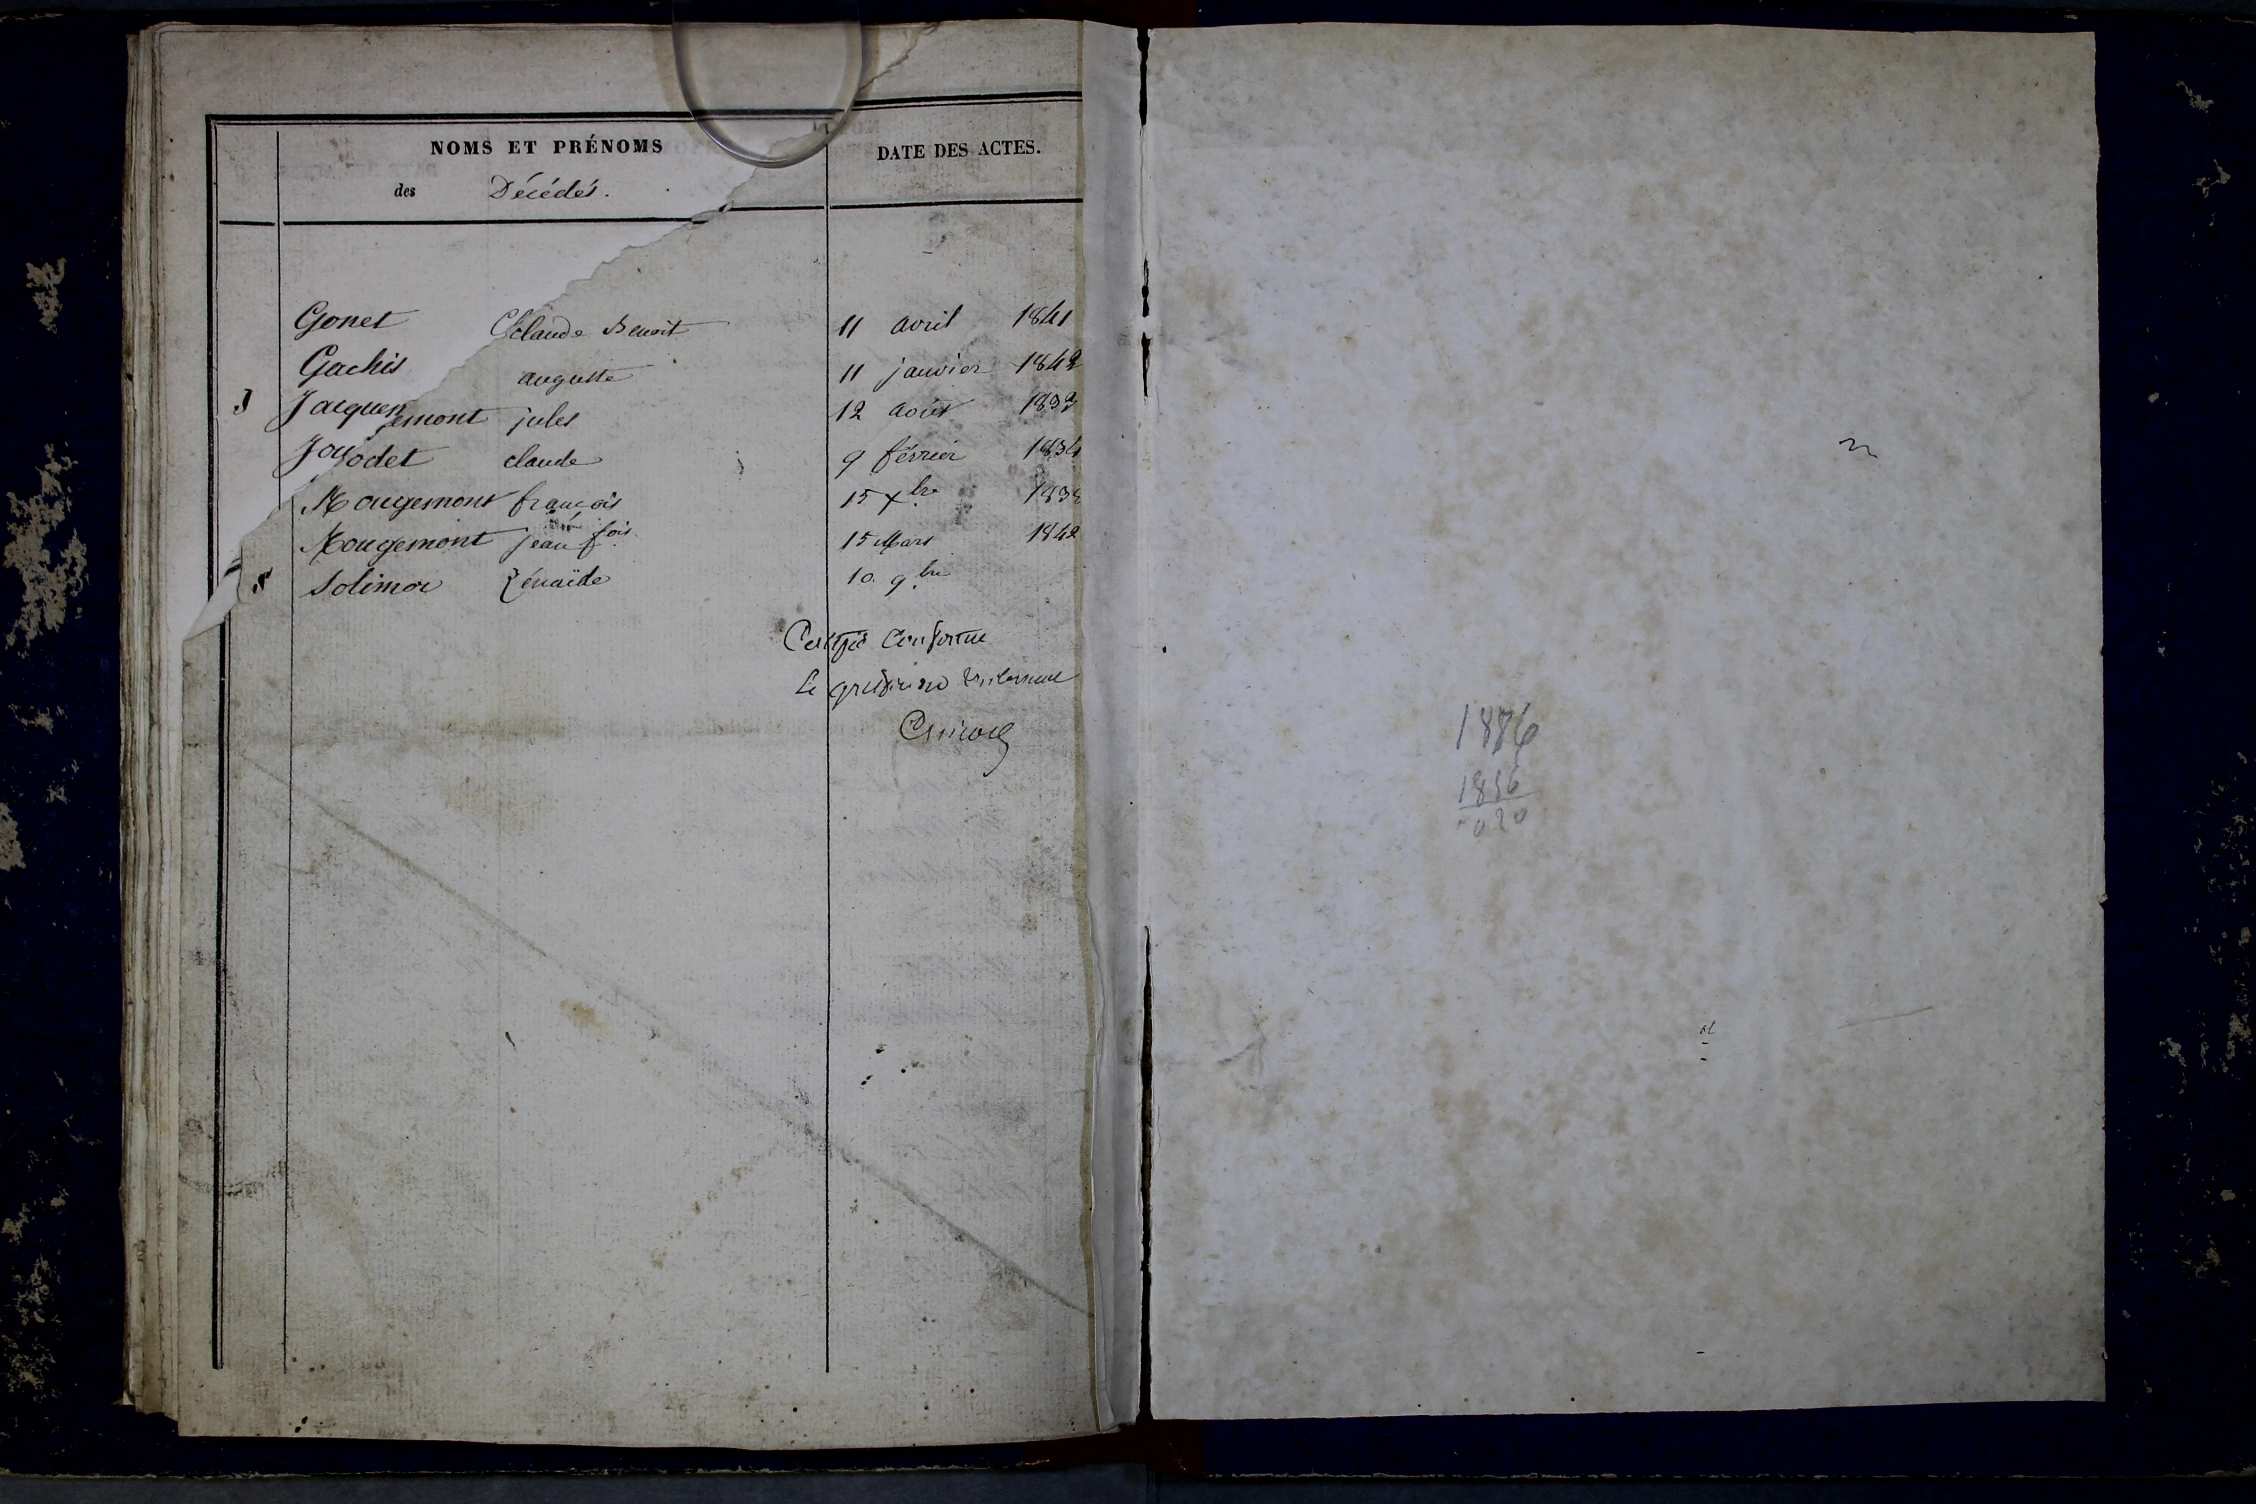 NOMS ET PRÉNOMS
des Décédés.
DATE DES ACTES.
Gonet Claude Benoit 11 avril 1841
Gachis auguste 11 janvier 1842
J Jacquenemont jules 12 août 183
claude 9 février 1834
Mougemont françois 15 Xbre 183
Mougemont jean fois 15 Mars 1842
S Solimor Zénaïde 10 9bre
Certifié Conforme
Le greffier
1876
1856
020